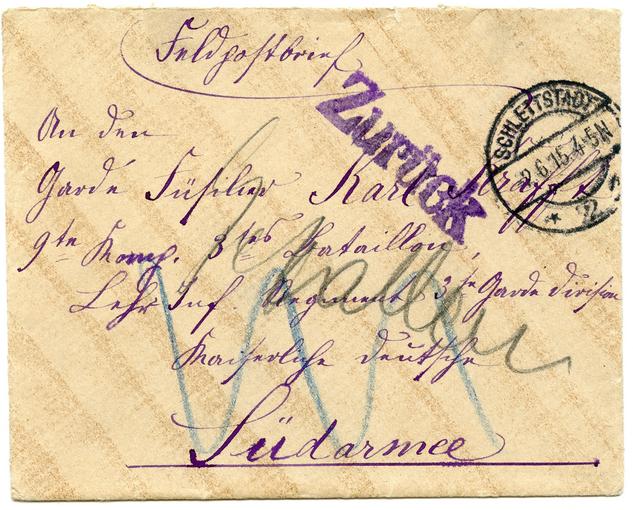 Feldpostbrief
Zurück
SCHLETTSTADT
6.15.4-5N
* 2
An den
Garde Füsilier Karl Krafft
9te Komp. 3tes Bataillon,
Lehr Inf. Regiment 3te Garde Division
Kaiserliche deutsche
Südarmee